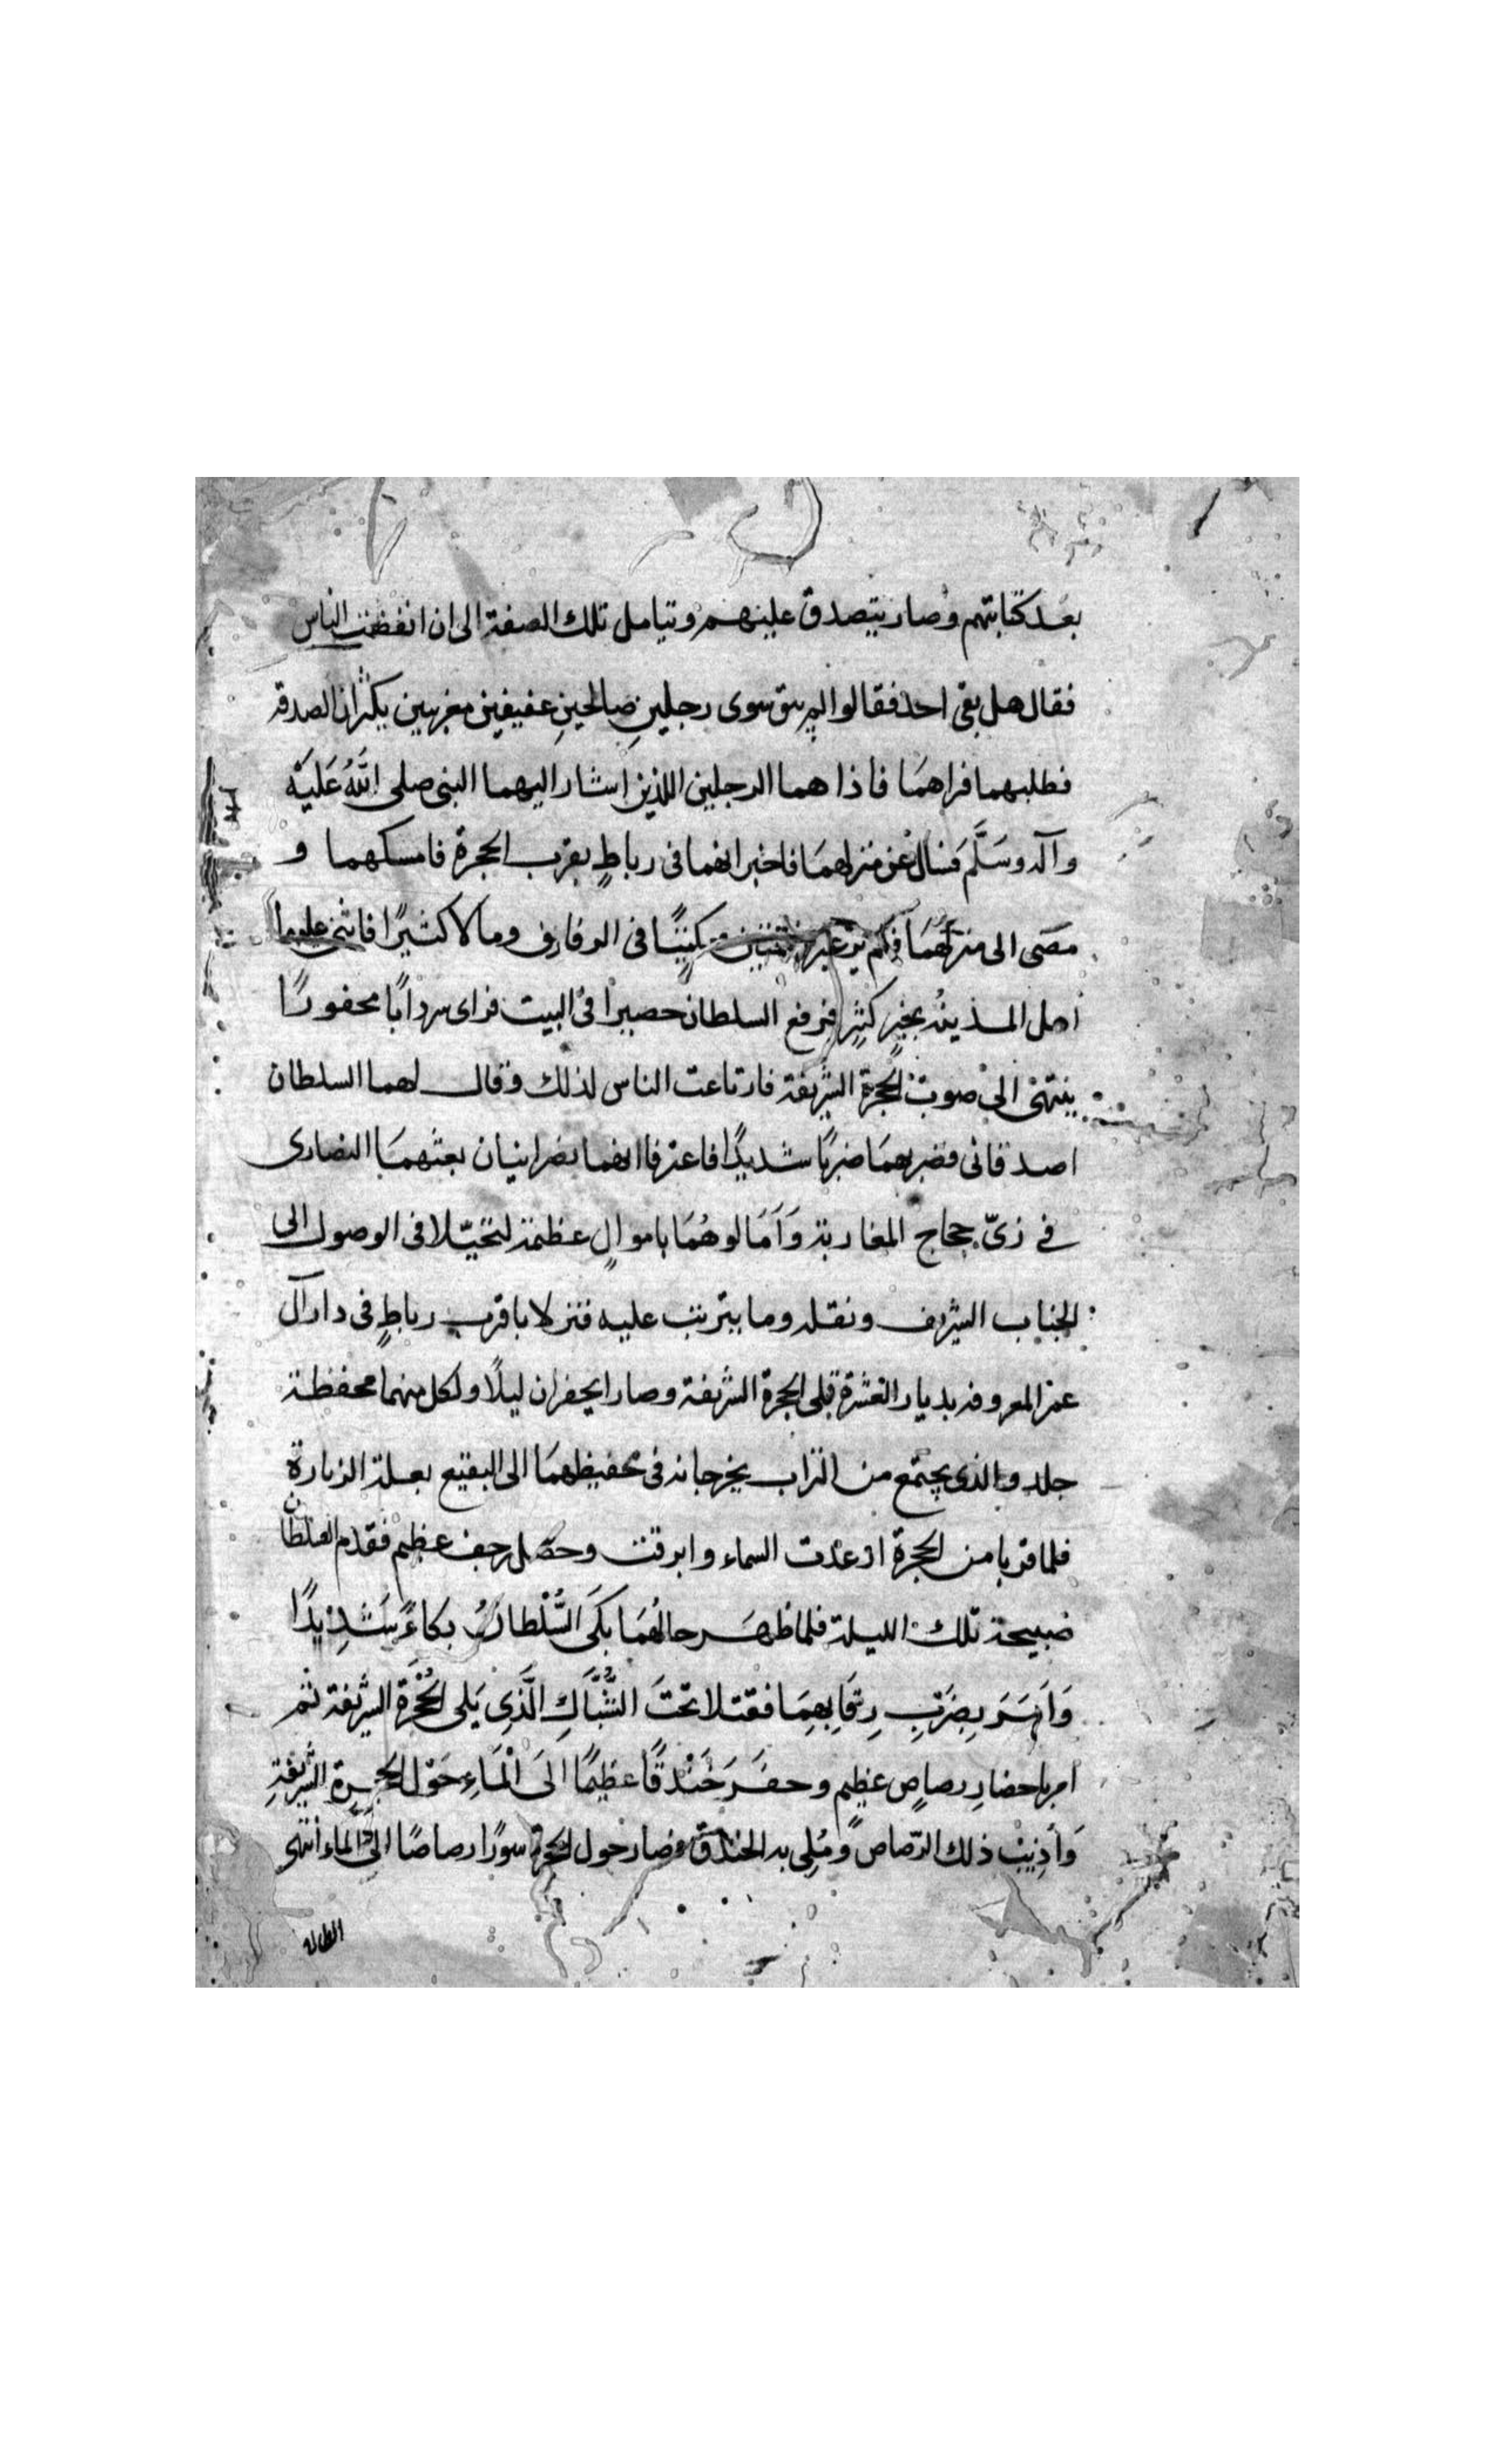 بعد كتابتهم وصار يتصدق عليهم وتيامل تلك الصفة الى ان انفضت الناس
فقال هل بقى احد فقالوا لم يبق سوى رجلين صالحين عفيفين مغربيين يكثران الصدقة
فطلبهما فراهما فاذا هما الرجلين اللذين اشار اليهما النبى صلى الله عليه
وآله وسلم فسال عن منزلهما فاخبر انهما فى رباط بقرب الحجرة فامسكهما و
مضى الى منزلهما فلم ير غير ختمتين وكتبا فى الرفارف ومالا كثيرا فاثنى عليهما
اهل المدينة بخير كثير فرفع السلطان حصيرا فى البيت فراى سردابا محفورا
ينتهى الى صوب الحجرة الشريفة فارتاعت الناس لذلك وقال لهما السلطان
اصدقانى فضربهما ضربا شديدا فاعترفا انهما نصرانيان بعثهما النصارى
في زىّ حجاج المغاربة وَآمَالوهُمَا باموالٍ عظيمة لتحيّلا فى الوصول الى
الجناب الشريف ونقله وما يترتب عليه فنزلا باقرب رباطٍ فى دار آل
عمر المعروفه بديار العشرة قبلى الحجرة الشريفة وصارا يحفران ليلًا ولكل منهما محفظة
جلد والذى يجتمع من التراب يخرجانه فى محفيظهما الى البقيع بعلة الزيارة
فلما قربا من الحجرة ارعدت السماء وابرقت وحصل رجف عظيم فقدم السلطان
صبيحة تلك الليلة فلما ظهر حالُهمَا بَكَى السُّلْطانُ بكاءً شَدِيدًا
وَاَمَرَ بِضَرْبِ رِقَابِهِمَا فقتلا تحْتَ الشُّبَّاكِ الَّذِى يَلى الحُجْرَة الشريفة ثم
امر باحضارِ رصاصٍ عظيمٍ وحفَرَ خَنْدقًا عظيمًا الَى الْمَاءِ حَوْل الحجرةِ الشَّريفةِ
وَاُذِيْبَ ذلك الرّصاص ومُلِى به الخندق فصار حول الحجرة سورًا رصاصًا الى الماء انتهى